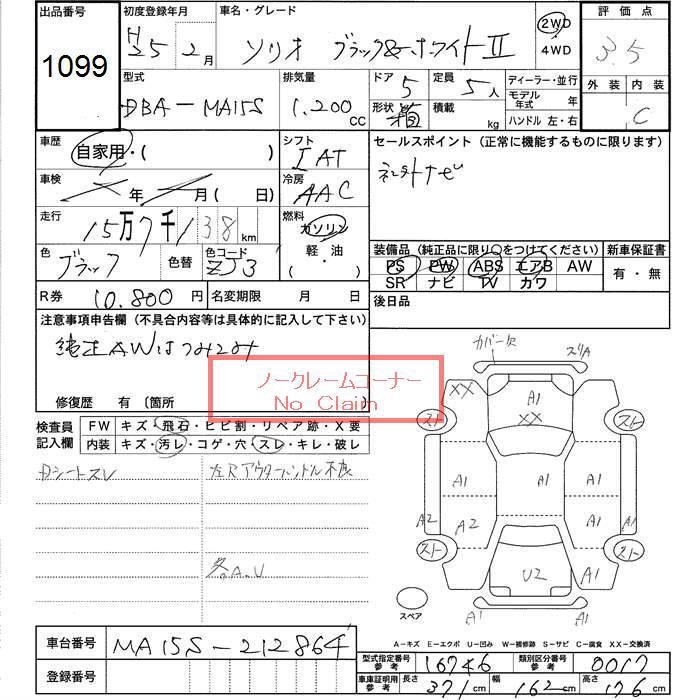 出品番号 初度登録年月 車名・グレード 評価点
1099 H25年 2月 ソリオ ブラック&ホワイトⅡ 2WD 4WD 3.5
外装 内装 C
型式 排気量 ドア 定員 ディーラー・並行
DBA-MA15S 1,200 CC 5 5人 モデル年式 年
形状 箱 積載 kg ハンドル 左・右
車歴 自家用・( ) シフト IAT セールスポイント (正常に機能するものに限ります)
車検 年 月 ( 日) 冷房 AAC 社外ナビ
走行 15万7千138km 燃料 ガソリン
軽・油
・( )
色 ブラック 色替 色コード ZJ3
装備品 (純正品に限り○をつけてください) 新車保証書
PS PW ABS エアB AW 有・無
SR ナビ TV カワ
R券 10.800円 名変期限 月 日 後日品
注意事項申告欄 (不具合内容等は具体的に記入して下さい)
純正AWはつみこみ
ノークレームコーナー
No Claim
修復歴 有 〔箇所
検査員記入欄 FW キズ・飛石・ヒビ割・リペア跡・X要
内装 キズ・汚レ・コゲ・穴・スレ・キレ・破レ
Dシートスレ 左Rアウターハンドル不良
各A.U
カバー欠 スリA
XX A1
XX
スト スト
A1 A1 A1
A2 A2 A1 A1
スト スト
U2 A1
A1 A1
スペア
A−キズ E−エクボ U−凹み W−補修跡 S−サビ C−腐食 XX−交換済
車台番号 MA15S-212864
登録番号
型式指定番号参考 16746 類別区分番号参考 0017
車庫証明用参考 長さ 371cm 幅 162cm 高さ 176cm